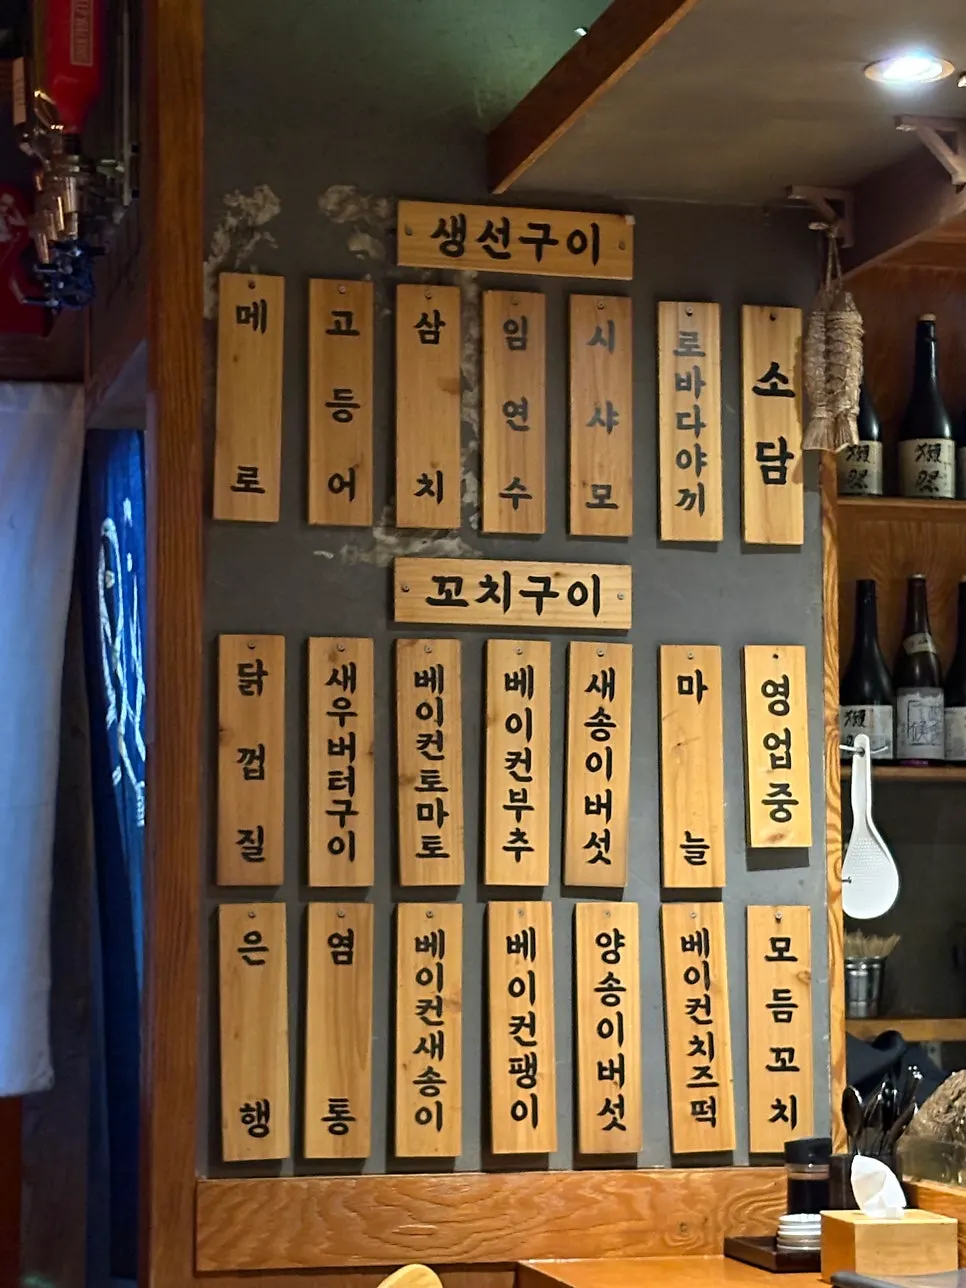 생선구이
메로
고등어
삼치
임연수
시샤모
로바다야끼
소담
꼬치구이
닭껍질
새우버터구이
베이컨토마토
베이컨부추
새송이버섯
마늘
영업중
은행
염통
베이컨새송이
베이컨팽이
양송이버섯
베이컨치즈떡
모듬꼬치
獺祭
獺祭
獺祭